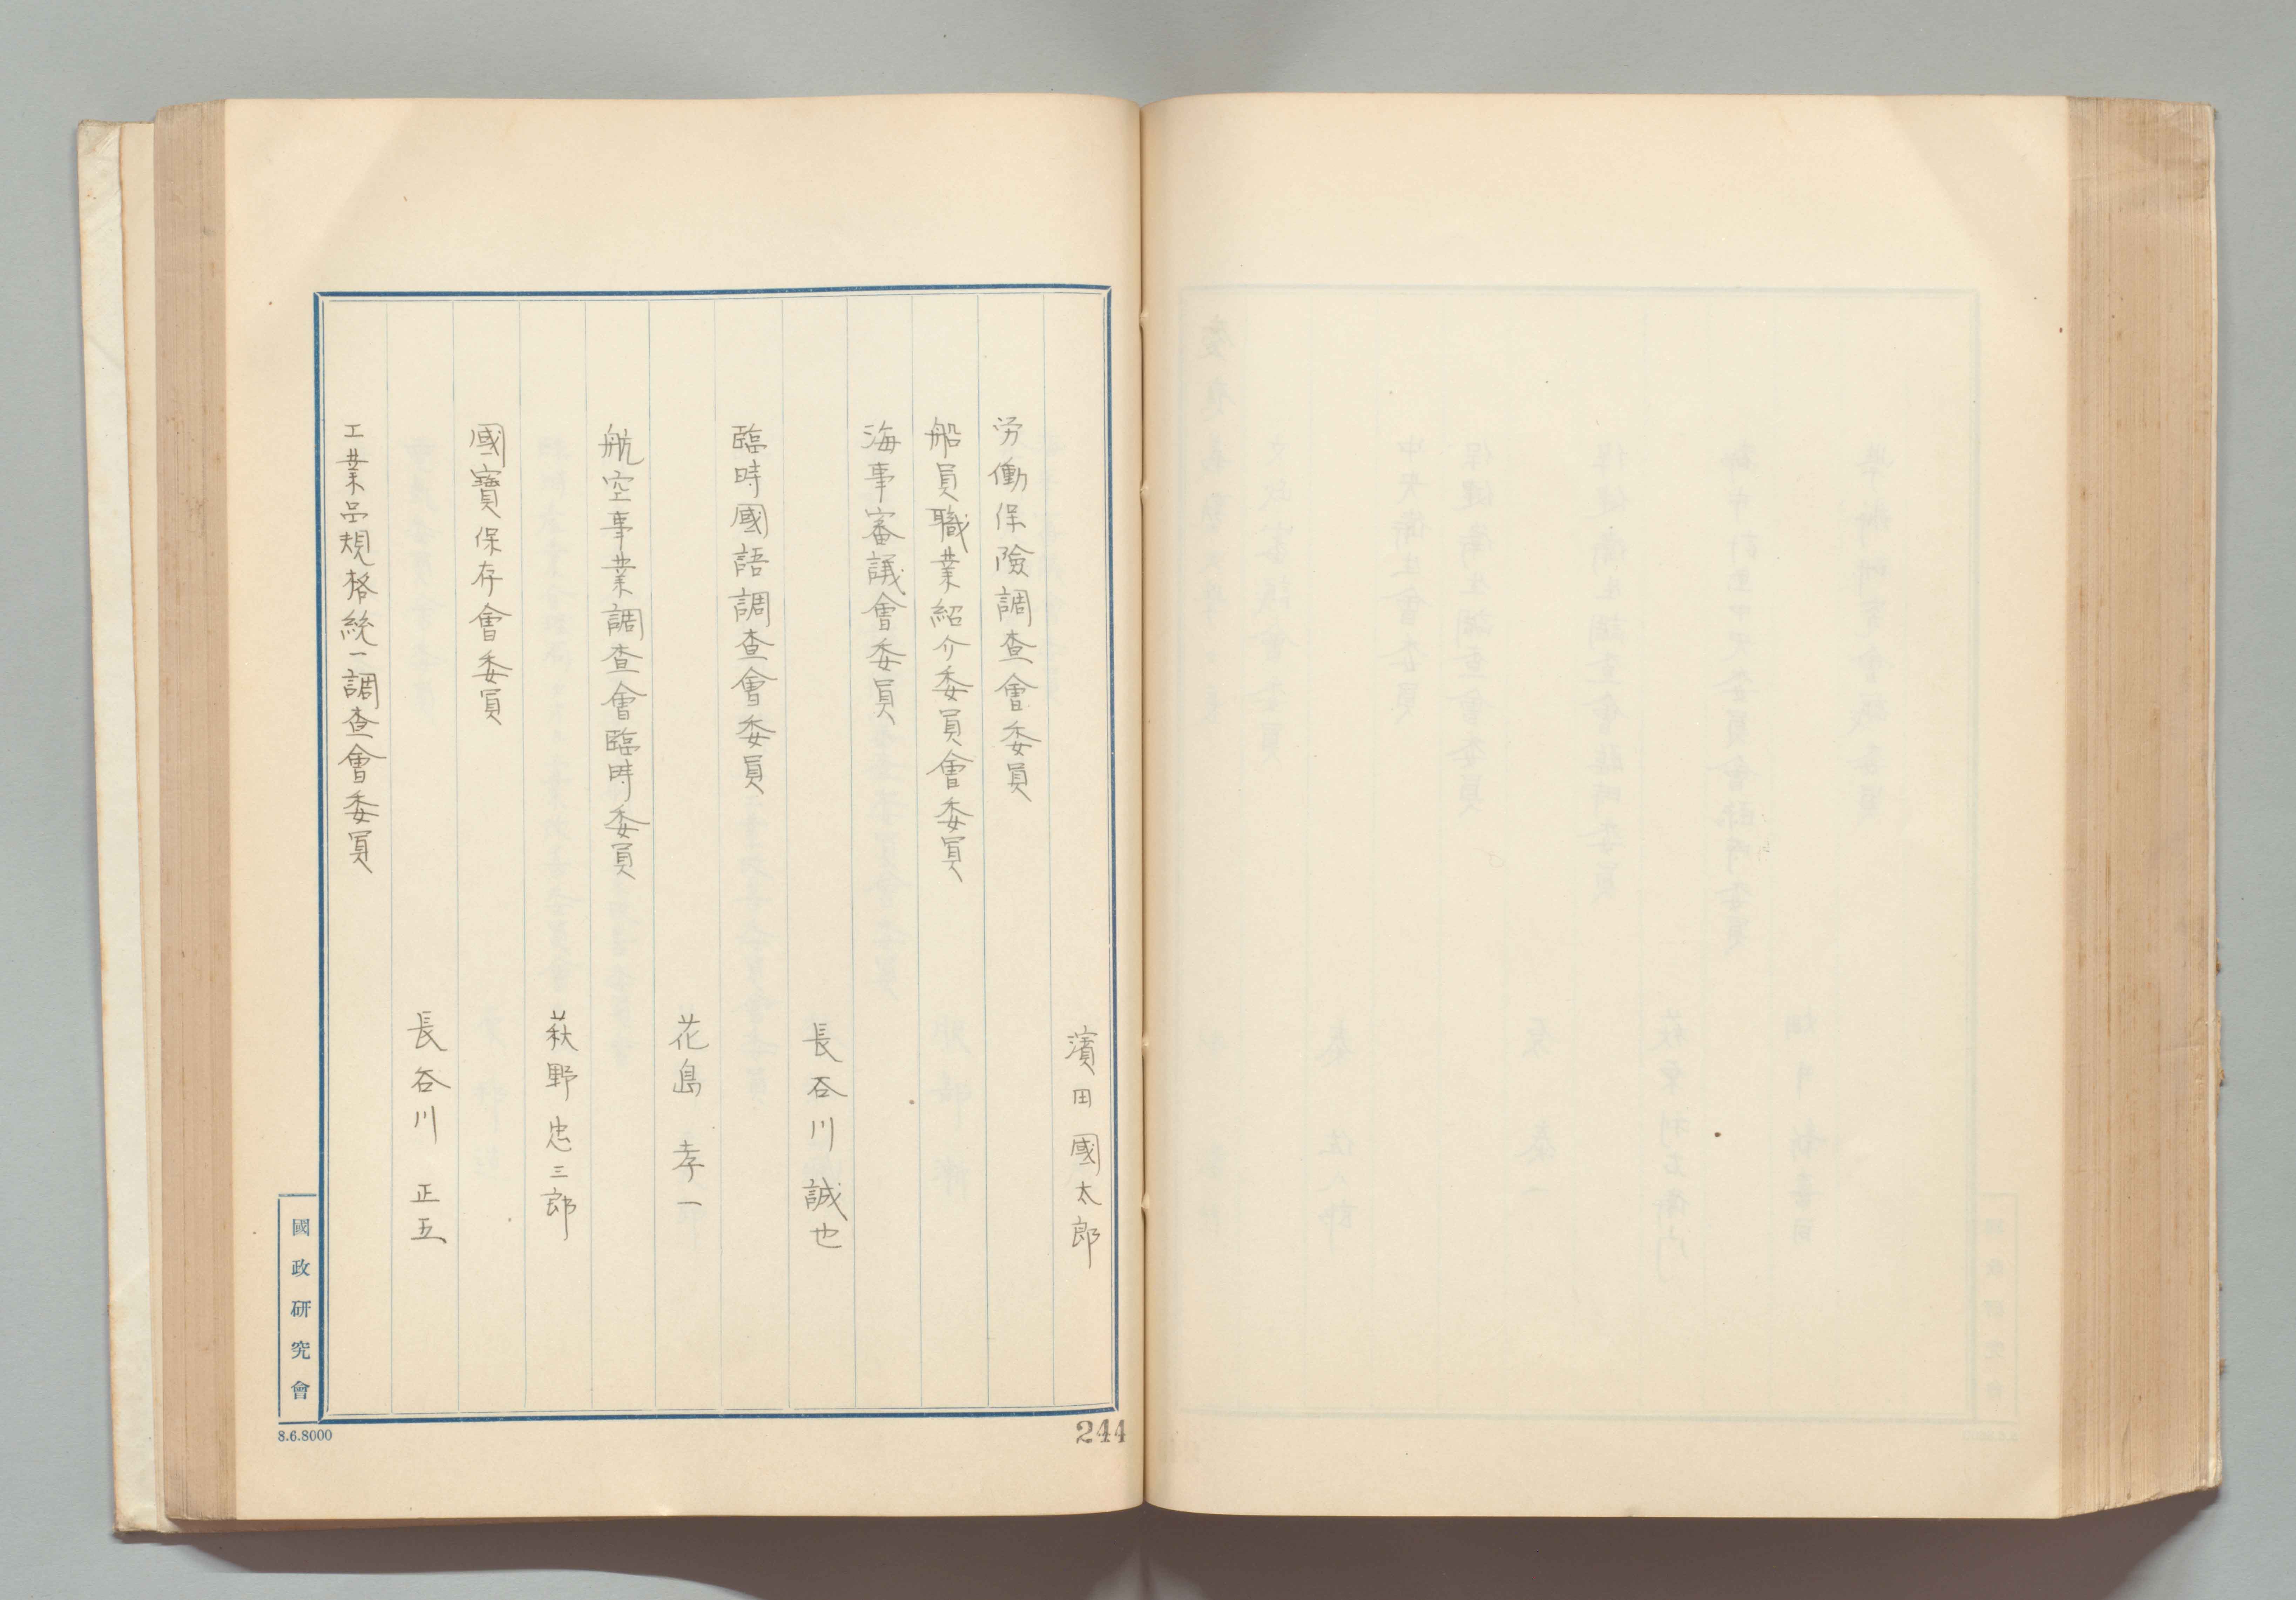 濱田國太郎
労働保險調査會委員
船員職業紹介委員會委員
海事審議會委員
長谷川誠也
臨時國語調査會委員
花島孝一
航空事業調査會臨時委員
萩野忠三郎
國寶保存會委員
長谷川正五
工業品規格統一調査會委員
國政研究會
8.6.8000
244